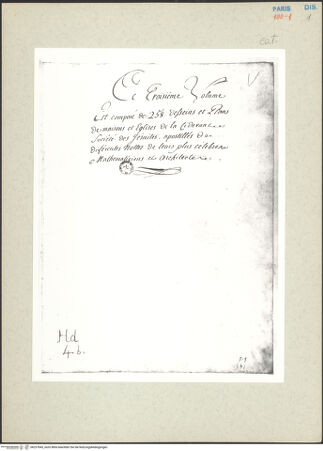 PARIS
DIS.
100-1
1
cat.
Ce Troisième Volume
Est composé de 258 desseins et Plans
de maisons et Eglises de la
Société des Jesuites, apostillés de
differentes Nottes de leurs plus célebres
Mathematiciens et Architectes
Hd
4.b.